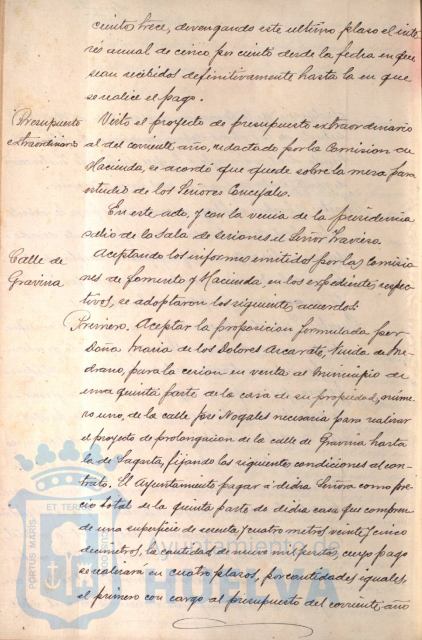 ciento trece, devengando este ultimo plaso el inte
rés anual de cinco por ciento desde la fecha en que
sean recibidos definitivamente hasta la en que
se realice el pago.
Presupuesto
extraordinario
Visto el proyecto de presupuesto extraordinario
al del corriente año, redactado por la Comision de
Hacienda, se acordó que quede sobre la mesa para
estudio de los Señores Concejales.
En este acto, y con la venia de la presidencia
salio de la Sala de sesiones el Señor Travieso.
Calle de
Gravina
Aceptando los informes emitidos por las Comisio
nes de Fomento y Hacienda, en los expedientes respec
tivos, se adoptaron los siguientes acuerdos:
Primero. Aceptar la proposicion formulada por
Doña Maria de los Dolores Alcarate, Viuda de Me
drano, para la cesion en venta al Municipio de
una quinta parte de la casa de su propiedad, núme
ro uno, de la calle José Nogales necesaria para realizar
el proyecto de prolongacion de la calle de Gravina hasta
la de Sagasta, fijando las siguientes condiciones al con-
trato. El Ayuntamiento pagar á dicha Señora como pre
cio total de la quinta parte de dicha casa que compren
de una superficie de sesenta y cuatro metros veinte y cinco
decimetros, la cantidad de nueve mil pesetas, cuyo pago
se realizará en cuatro plazos, por cantidades iguales,
el primero con cargo al presupuesto del corriente año
PORTUS MARIS
ET TERRAE
CUSTODIA
Ayuntamiento de
HUELVA